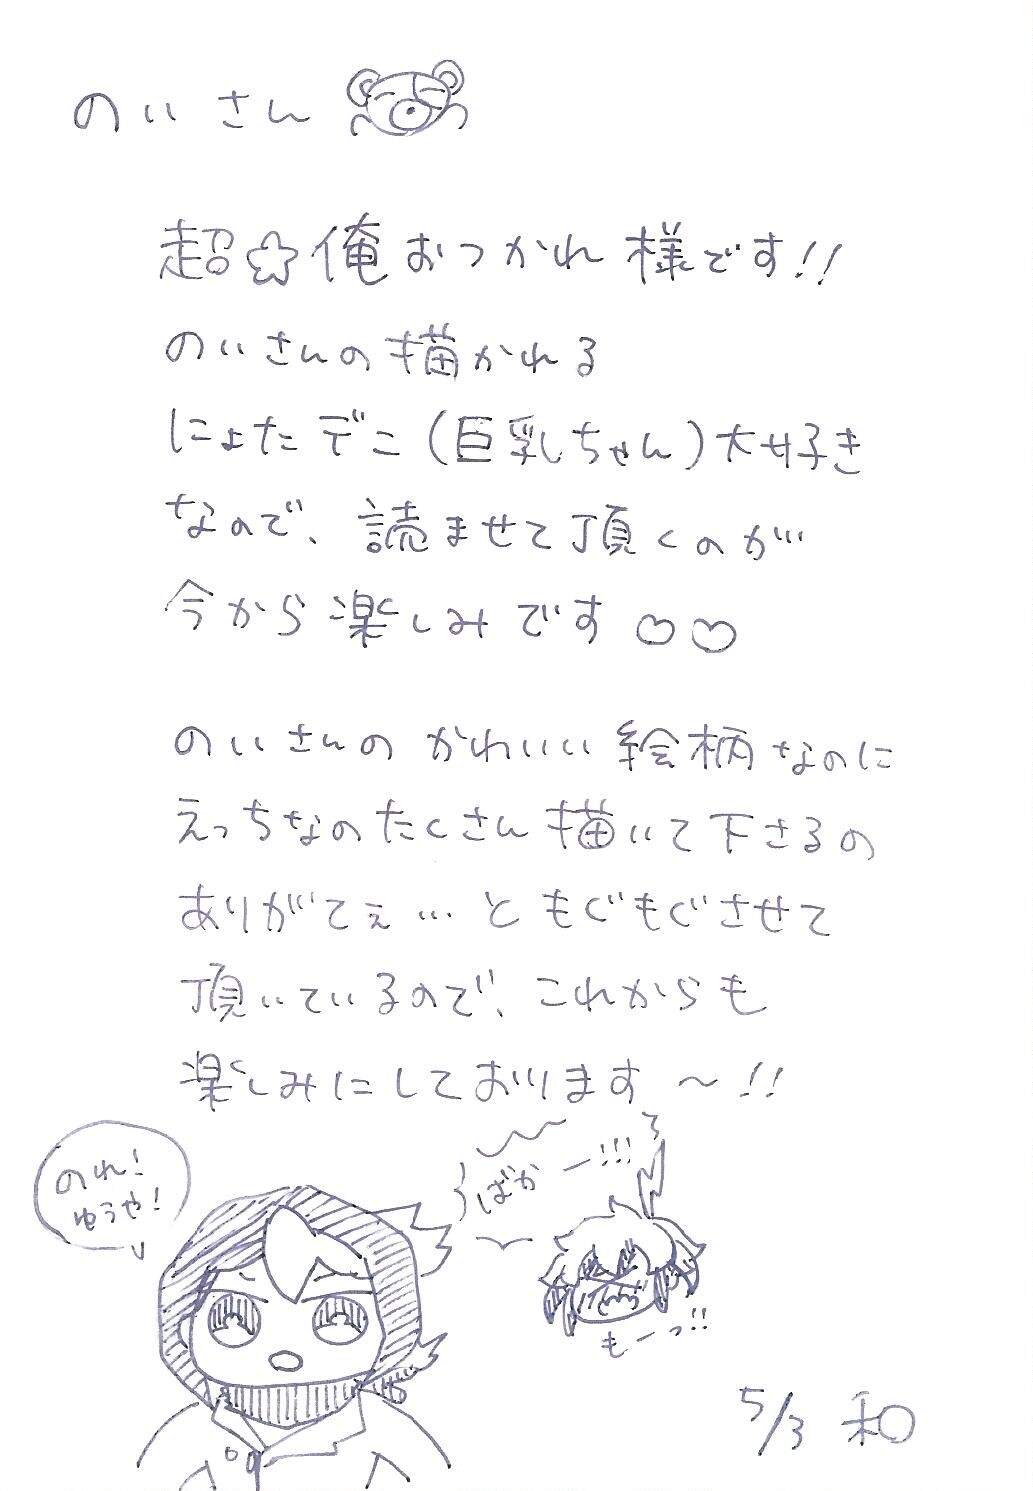 のいさん
超☆俺おつかれ様です!!
のいさんの描かれる
にょたデニ(巨乳ちゃん)大好き
なので、読ませて頂くのが…
今から楽しみです♡♡
のいさんのかわいい絵柄なのに
えっちなのたくさん描いて下さるの
ありがてぇ…ともぐもぐさせて
頂いているので、これからも
楽しみにしております〜!!
のれ!
ゆうや!
ばかー!!!
もーっ!!
5/3 和